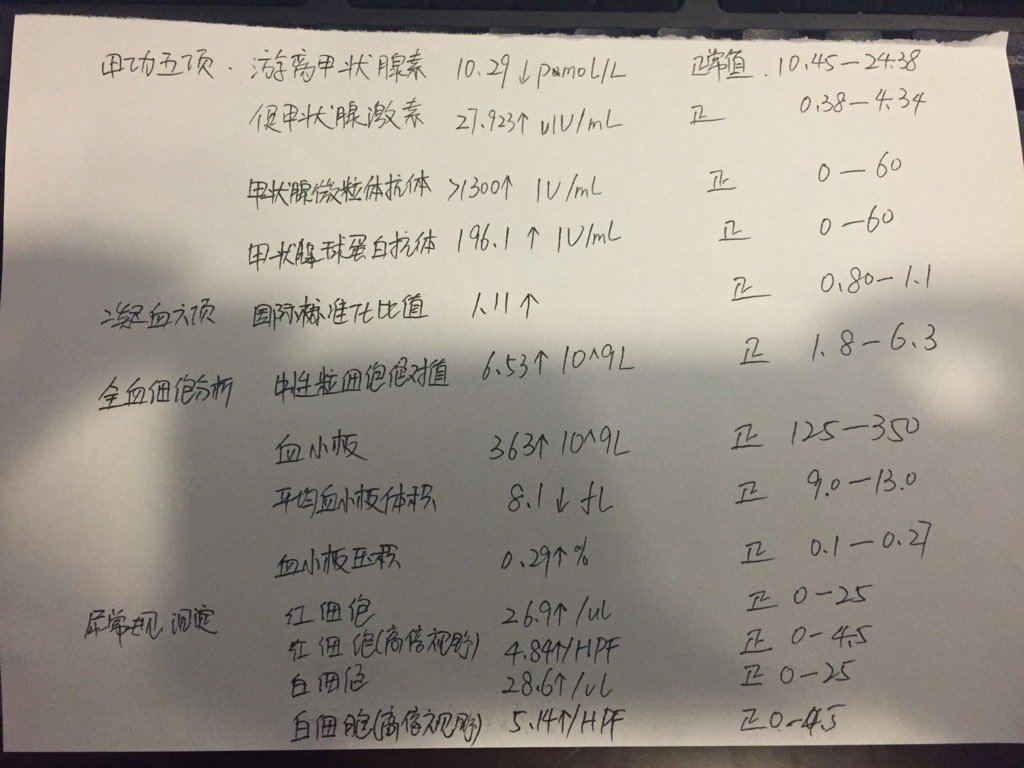 甲功五项. 游离甲状腺素 10.29↓pomol/L 正常值. 10.45-24.38
促甲状腺激素 27.923↑ uIU/mL 正 0.38-4.34
甲状腺微粒体抗体 >1300↑ IU/mL 正 0-60
甲状腺球蛋白抗体 196.1↑ IU/mL 正 0-60
凝血六项 国际标准化比值 1.11↑ 正 0.80-1.1
全血细胞分析 中性粒细胞绝对值 6.53↑ 10^9L 正 1.8-6.3
血小板 363↑ 10^9L 正 125-350
平均血小板体积 8.1↓ fL 正 9.0-13.0
血小板压积 0.29↑% 正 0.1-0.27
尿常规 测定 红细胞 26.9↑/ul 正 0-25
红细胞(高倍视野) 4.84↑/HPF 正 0-4.5
白细胞 28.6↑/ul 正 0-25
白细胞(高倍视野) 5.14↑/HPF 正 0-4.5